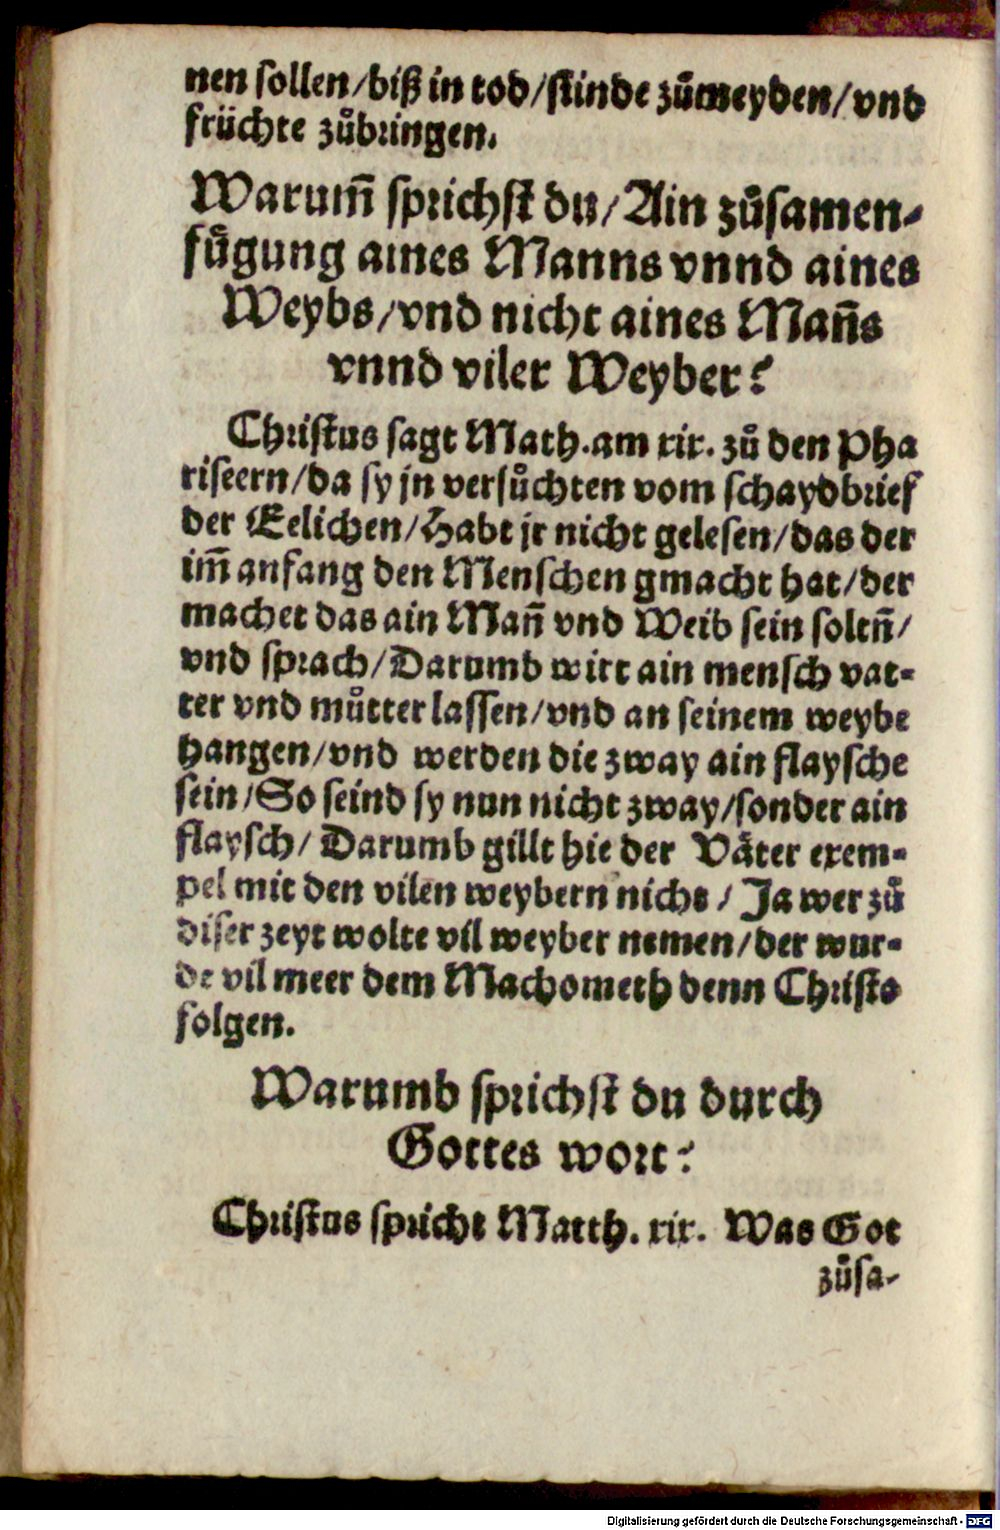 nen sollen/biß in tod/sünde zůmeyden/vnd
früchte zůbringen.
Warum̃ sprichst du/Ain zůsamen-
fůgung aines Manns vnnd aines
Weybs/vnd nicht aines Mañs
vnnd viler Weyber?
Christus sagt Math. am xix. zů den Pha
riseern/da sy jn versůchten vom schaydbrief
der Eelichen/Habt jr nicht gelesen/das der
im̃ anfang den Menschen gmacht hat/der
machet das ain Mañ vnd Weib sein soltñ/
vnd sprach/Darumb wirt ain mensch vat-
ter vnd můtter lassen/vnd an seinem weybe
hangen/vnd werden die zway ain flaysche
sein/So seind sy nun nicht zway/sonder ain
flaysch/Darumb gillt hie der Väter exem-
pel mit den vilen weybern nicht/Ja wer zů
diser zeyt wolte vil weyber nemen/der wur-
de vil meer dem Machometh denn Christo
folgen.
Warumb sprichst du durch
Gottes wort?
Christus spricht Matth. xix. Was Got
zůsa-
Digitalisierung gefördert durch die Deutsche Forschungsgemeinschaft - DFG